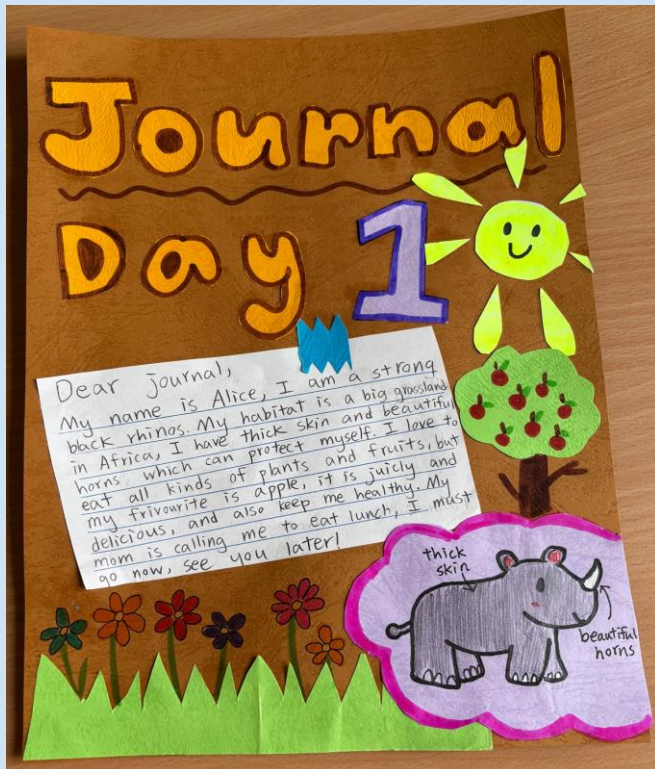 Journal
Day 1
Dear journal,
My name is Alice, I am a strong
back rhinos. My habitat is a big grassland
in Africa, I have thick skin and beautiful
horns which can protect myself. I love to
eat all kinds of plants and fruits, but
my frivourite is apple, it is juicly and
delicious, and also keep me healthy. My
mom is calling me to eat lunch, I must
go now, see you later!
thick
skin
beautiful
horns